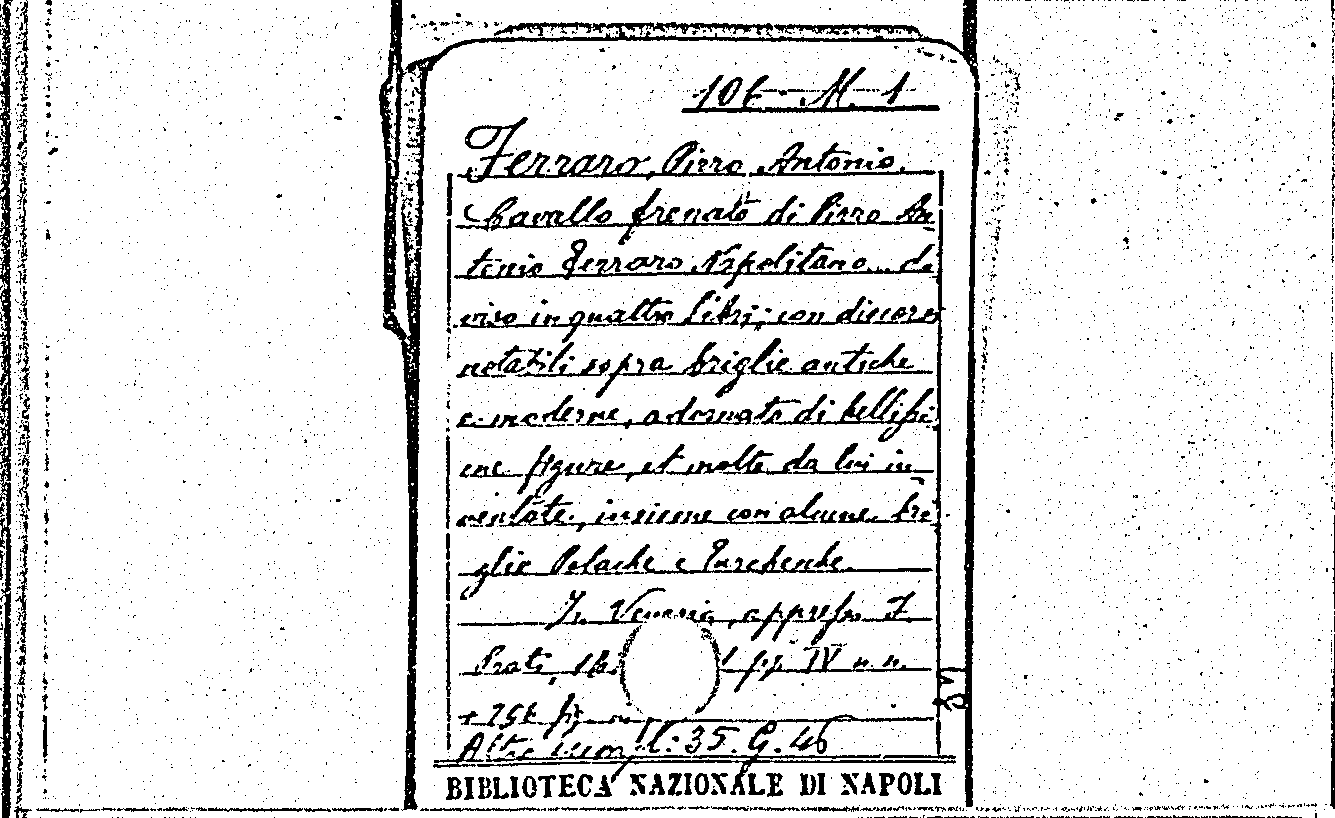 106 - M. 1
Ferraro, Pirro Antonio.
Cavallo frenato di Pirro An
tonio Ferraro Napolitano... di
viso in quattro Libri; con discorsi
notabili sopra briglie antiche
e moderne, adornato di bellissi
me figure, et molte da lui in
ventate, insieme con alcune bri
glie Polache e Turchesche.
In Venezia, appresso F.
Prati, pp. IV n. n.
+ fig.
Altro esempl: 35. G. 46
BIBLIOTECA NAZIONALE DI NAPOLI